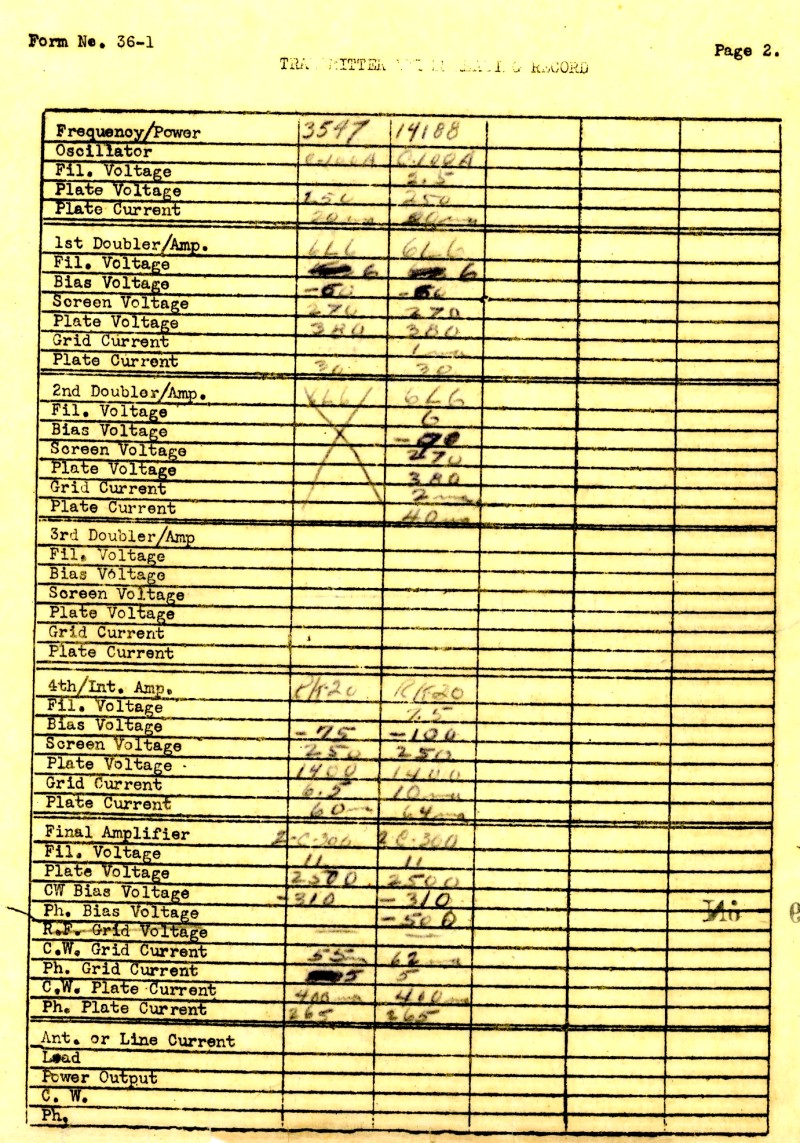 Form No. 36-1
Page 2.
TRANSMITTER RECORD
Frequency/Power 3547 14188
Oscillator C-100A C-100A
Fil. Voltage 2.5
Plate Voltage 250 250
Plate Current 20 ma 20 ma
1st Doubler/Amp. 6L6 6L6
Fil. Voltage 6 6
Bias Voltage
Screen Voltage 270 270
Plate Voltage 380 380
Grid Current 1 ma
Plate Current 30 30
2nd Doubler/Amp. 6L6
Fil. Voltage 6
Bias Voltage
Screen Voltage 270
Plate Voltage 380
Grid Current 2 ma
Plate Current 40 ma
3rd Doubler/Amp
Fil. Voltage
Bias Voltage
Screen Voltage
Plate Voltage
Grid Current
Plate Current
4th/Int. Amp. RK20 RK20
Fil. Voltage 7.5
Bias Voltage -75 -100
Screen Voltage 250 250
Plate Voltage 1400 1400
Grid Current 6.5 10 ma
Plate Current 60 ma 64 ma
Final Amplifier 2-C-300 2 C-300
Fil. Voltage 11 11
Plate Voltage 2500 2500
CW Bias Voltage -310 -310
Ph. Bias Voltage -500
R.F. Grid Voltage — —
C.W. Grid Current 55 ma 62 ma
Ph. Grid Current 5 5
C.W. Plate Current 400 ma 400 ma
Ph. Plate Current 265 265
Ant. or Line Current
Load
Power Output
C. W.
Ph.